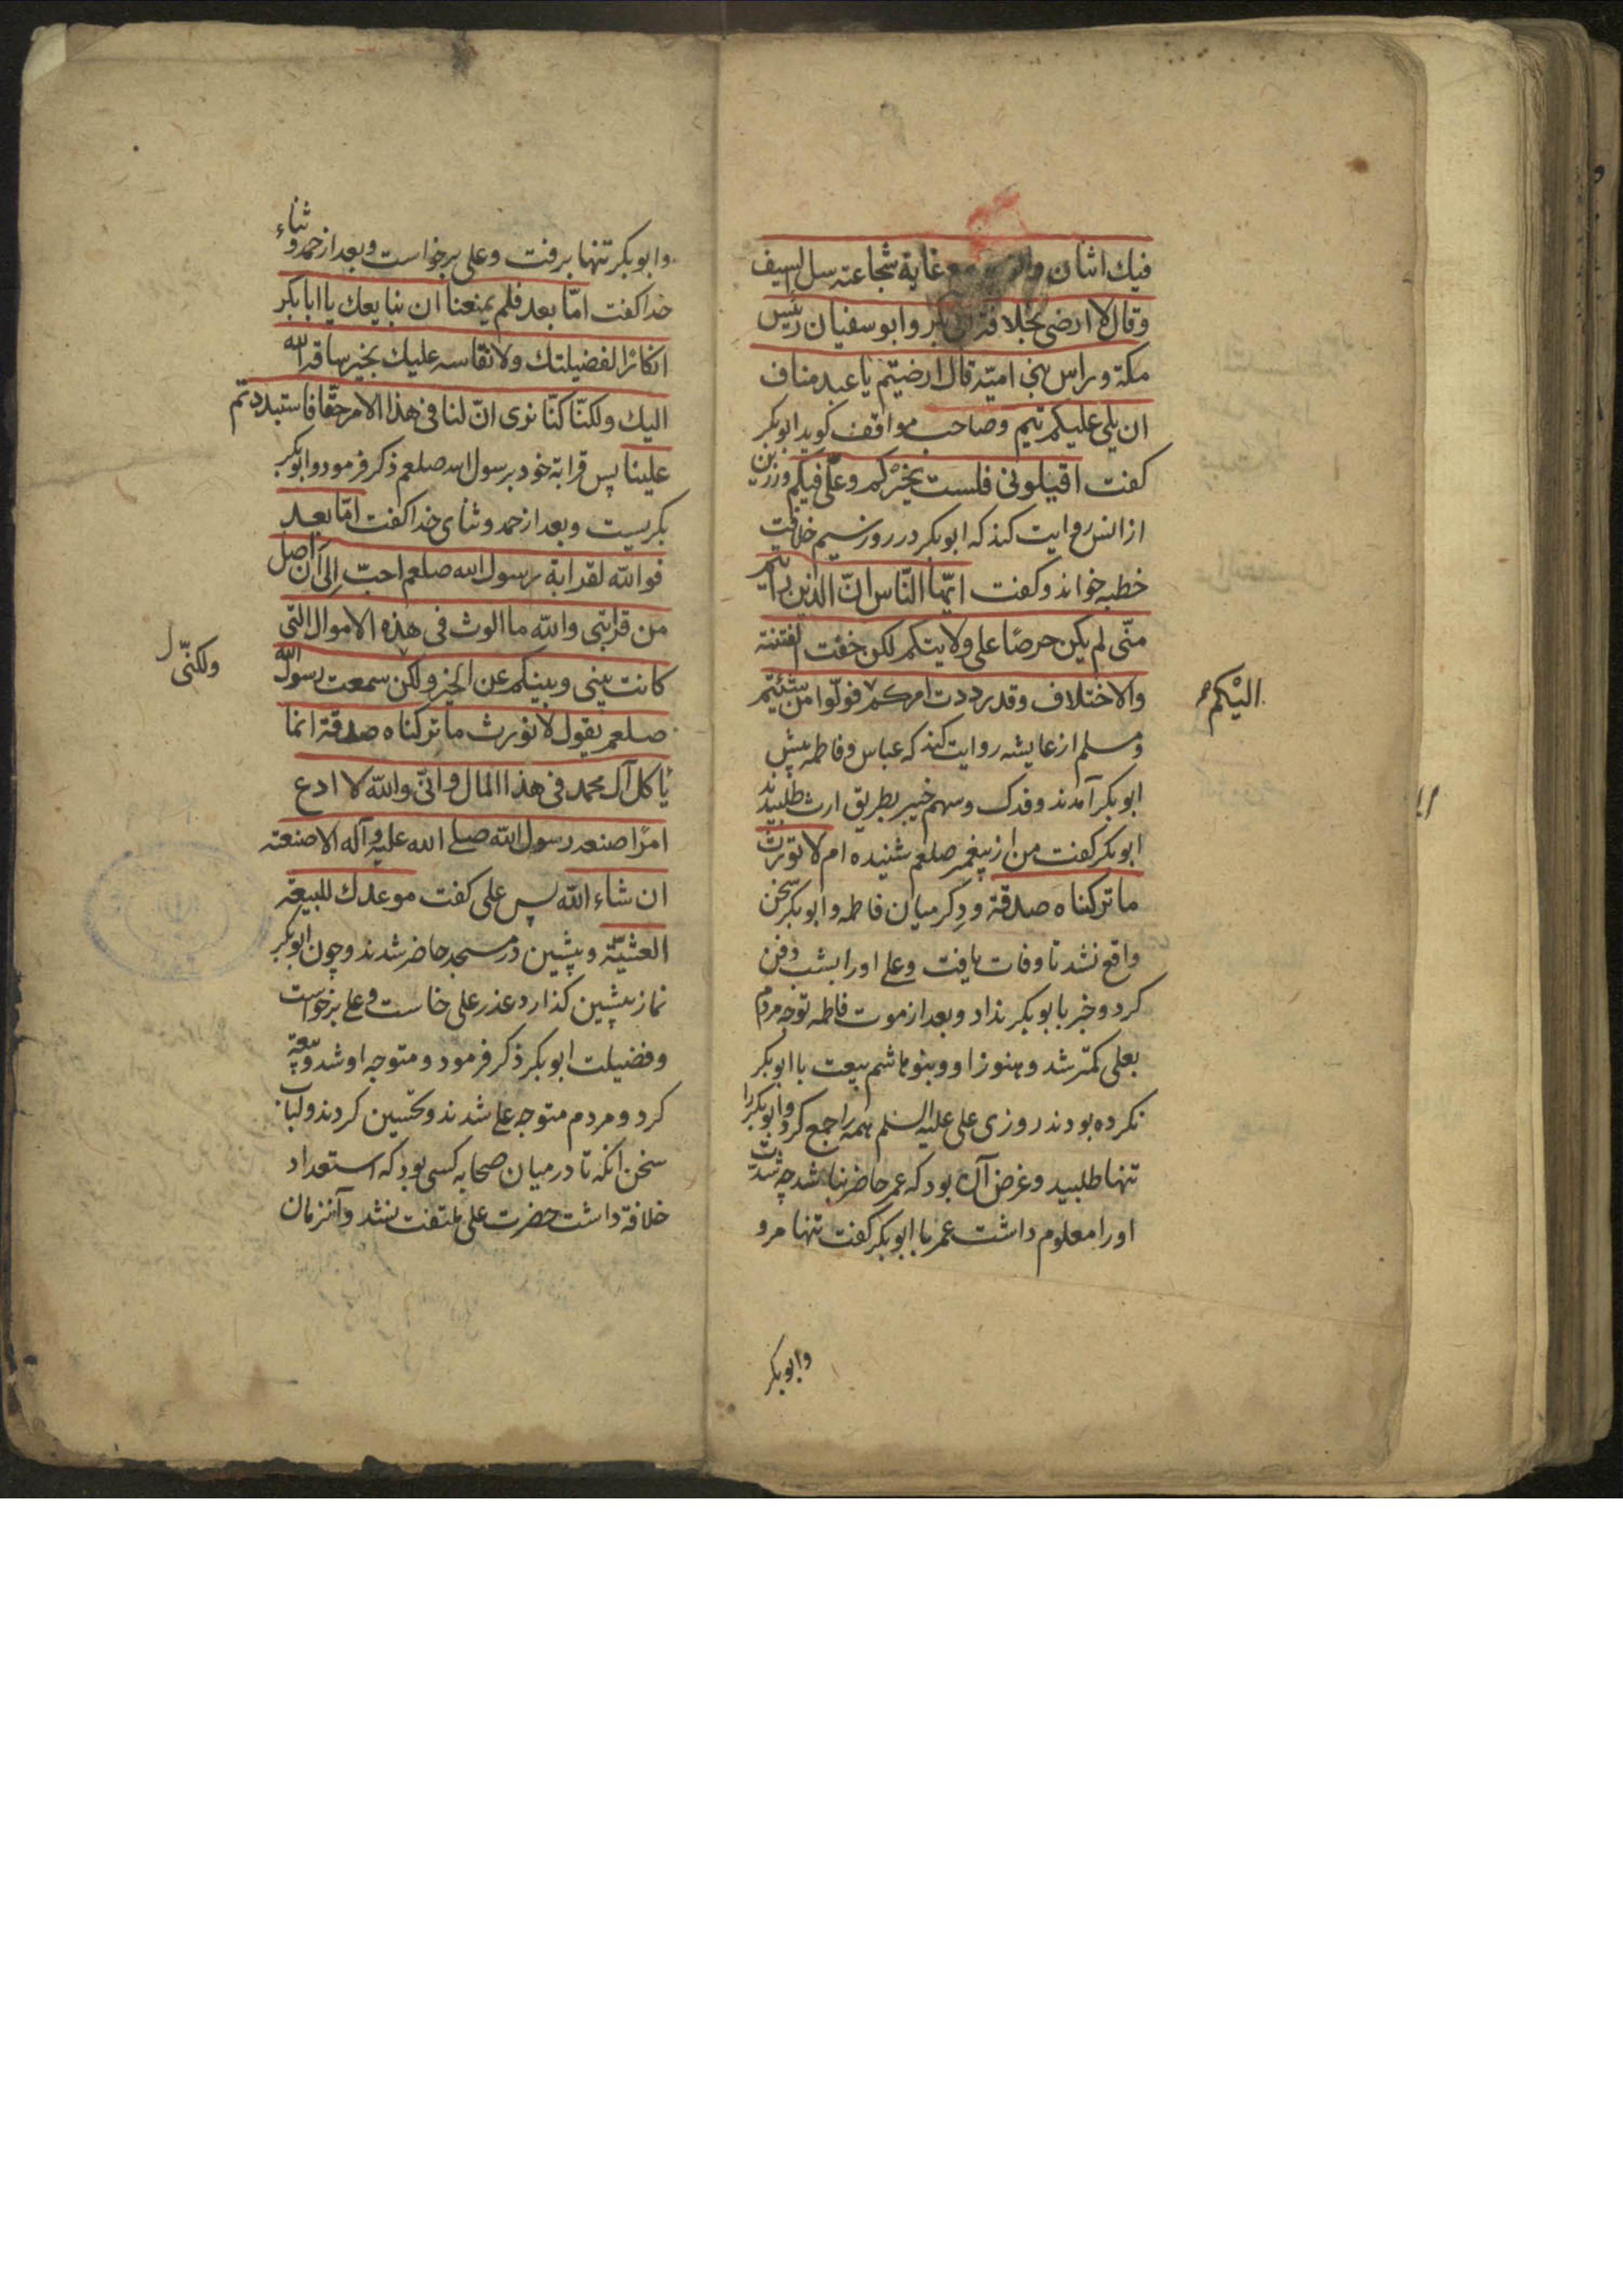 فيك اثنان والزبير مع غاية شجاعته سل السيف
وقال لا ارضى بخلافة ابى بكر وابو سفيان رئيس
مكة وراس بنى امية قال ارضيتم يا عبد مناف
ان يلى عليكم تيم وصاحب مواقف كويد ابوبكر
كفت اقيلونى فلست بخيركم وعلىّ فيكم ورزين
از انس روايت كند كه ابوبكر در روز سيم خلافت
خطبه خواند وكفت ايّها النّاس انّ الذين رايتم
منّى لم يكن حرصًا على ولايتكم لكن خفت الفتنة
والاختلاف وقد رددت امركم فولّوا من شئتم
اليْكم
ومسلم از عايشه روايت كند كه عباس وفاطمه پيش
ابوبكر آمدند وفدك وسهم خيبر بطريق ارث طلبيدند
ابوبكر كفت من از پيغمبر صلعم شنيده ام لا نورث
ما تركناه صدقة ودكر ميان فاطمه وابوبكر سخن
واقع نشد تا وفات يافت وعلى اورا بشب دفن
كرد وخبر بابوبكر نداد وبعد از موت فاطمه توجه مردم
بعلى كمتر شد وهنوز او وبنو هاشم بيعت با ابوبكر
نكرده بودند روزى على عليه السلم همه را جمع كرد وابوبكر را
تنها طلبيد وغرض آن بود كه عمر حاضر نباشد چه شدّت
اورا معلوم داشت عمر با ابوبكر كفت تنها مرو
وابوبكر
وابوبكر تنها برفت وعلى برخواست وبعد از حمد وثناء
خدا كفت امّا بعد فلم يمنعنا ان نبايعك يا ابا بكر
انكارًا لفضيلتك ولا نفاسه عليك بخير ساقه الله
اليك ولكنّا كنّا نرى انّ لنا فى هذا الامر حقّا فاستبددتم
علينا پس قرابة خود برسول الله صلعم ذكر فرمود وابوبكر
بكريست وبعد از حمد وثناى خدا كفت امّا بعد
فو الله لقرابة رسول الله صلعم احبّ الى ان اصل
من قرابتى والله ما الوث فى هذه الاموال التى
كانت بينى وبينكم عن الخير ولكن سمعت رسول الله
ولكنّى
صلعم يقول لا نورث ما تركناه صدقة انما
يأكل آل محمد فى هذا المال وانّى والله لا ادع
امرًا صنعه رسول الله صلى الله عليه وآله الا صنعته
ان شاء الله پس على كفت موعدك للبيعة
العشيّة وپيشين در مسجد حاضر شدند وچون ابوبكر
نماز پيشين كذارد عذر على خاست وعلى برخواست
وفضيلت ابوبكر ذكر فرمود ومتوجه او شد وبيعة
كرد ومردم متوجه على شدند وتحسين كردند ولباب
سخن آنكه تا در ميان صحابه كسى بود كه استعداد
خلافة داشت حضرت على ملتفت نشد وآنزمان